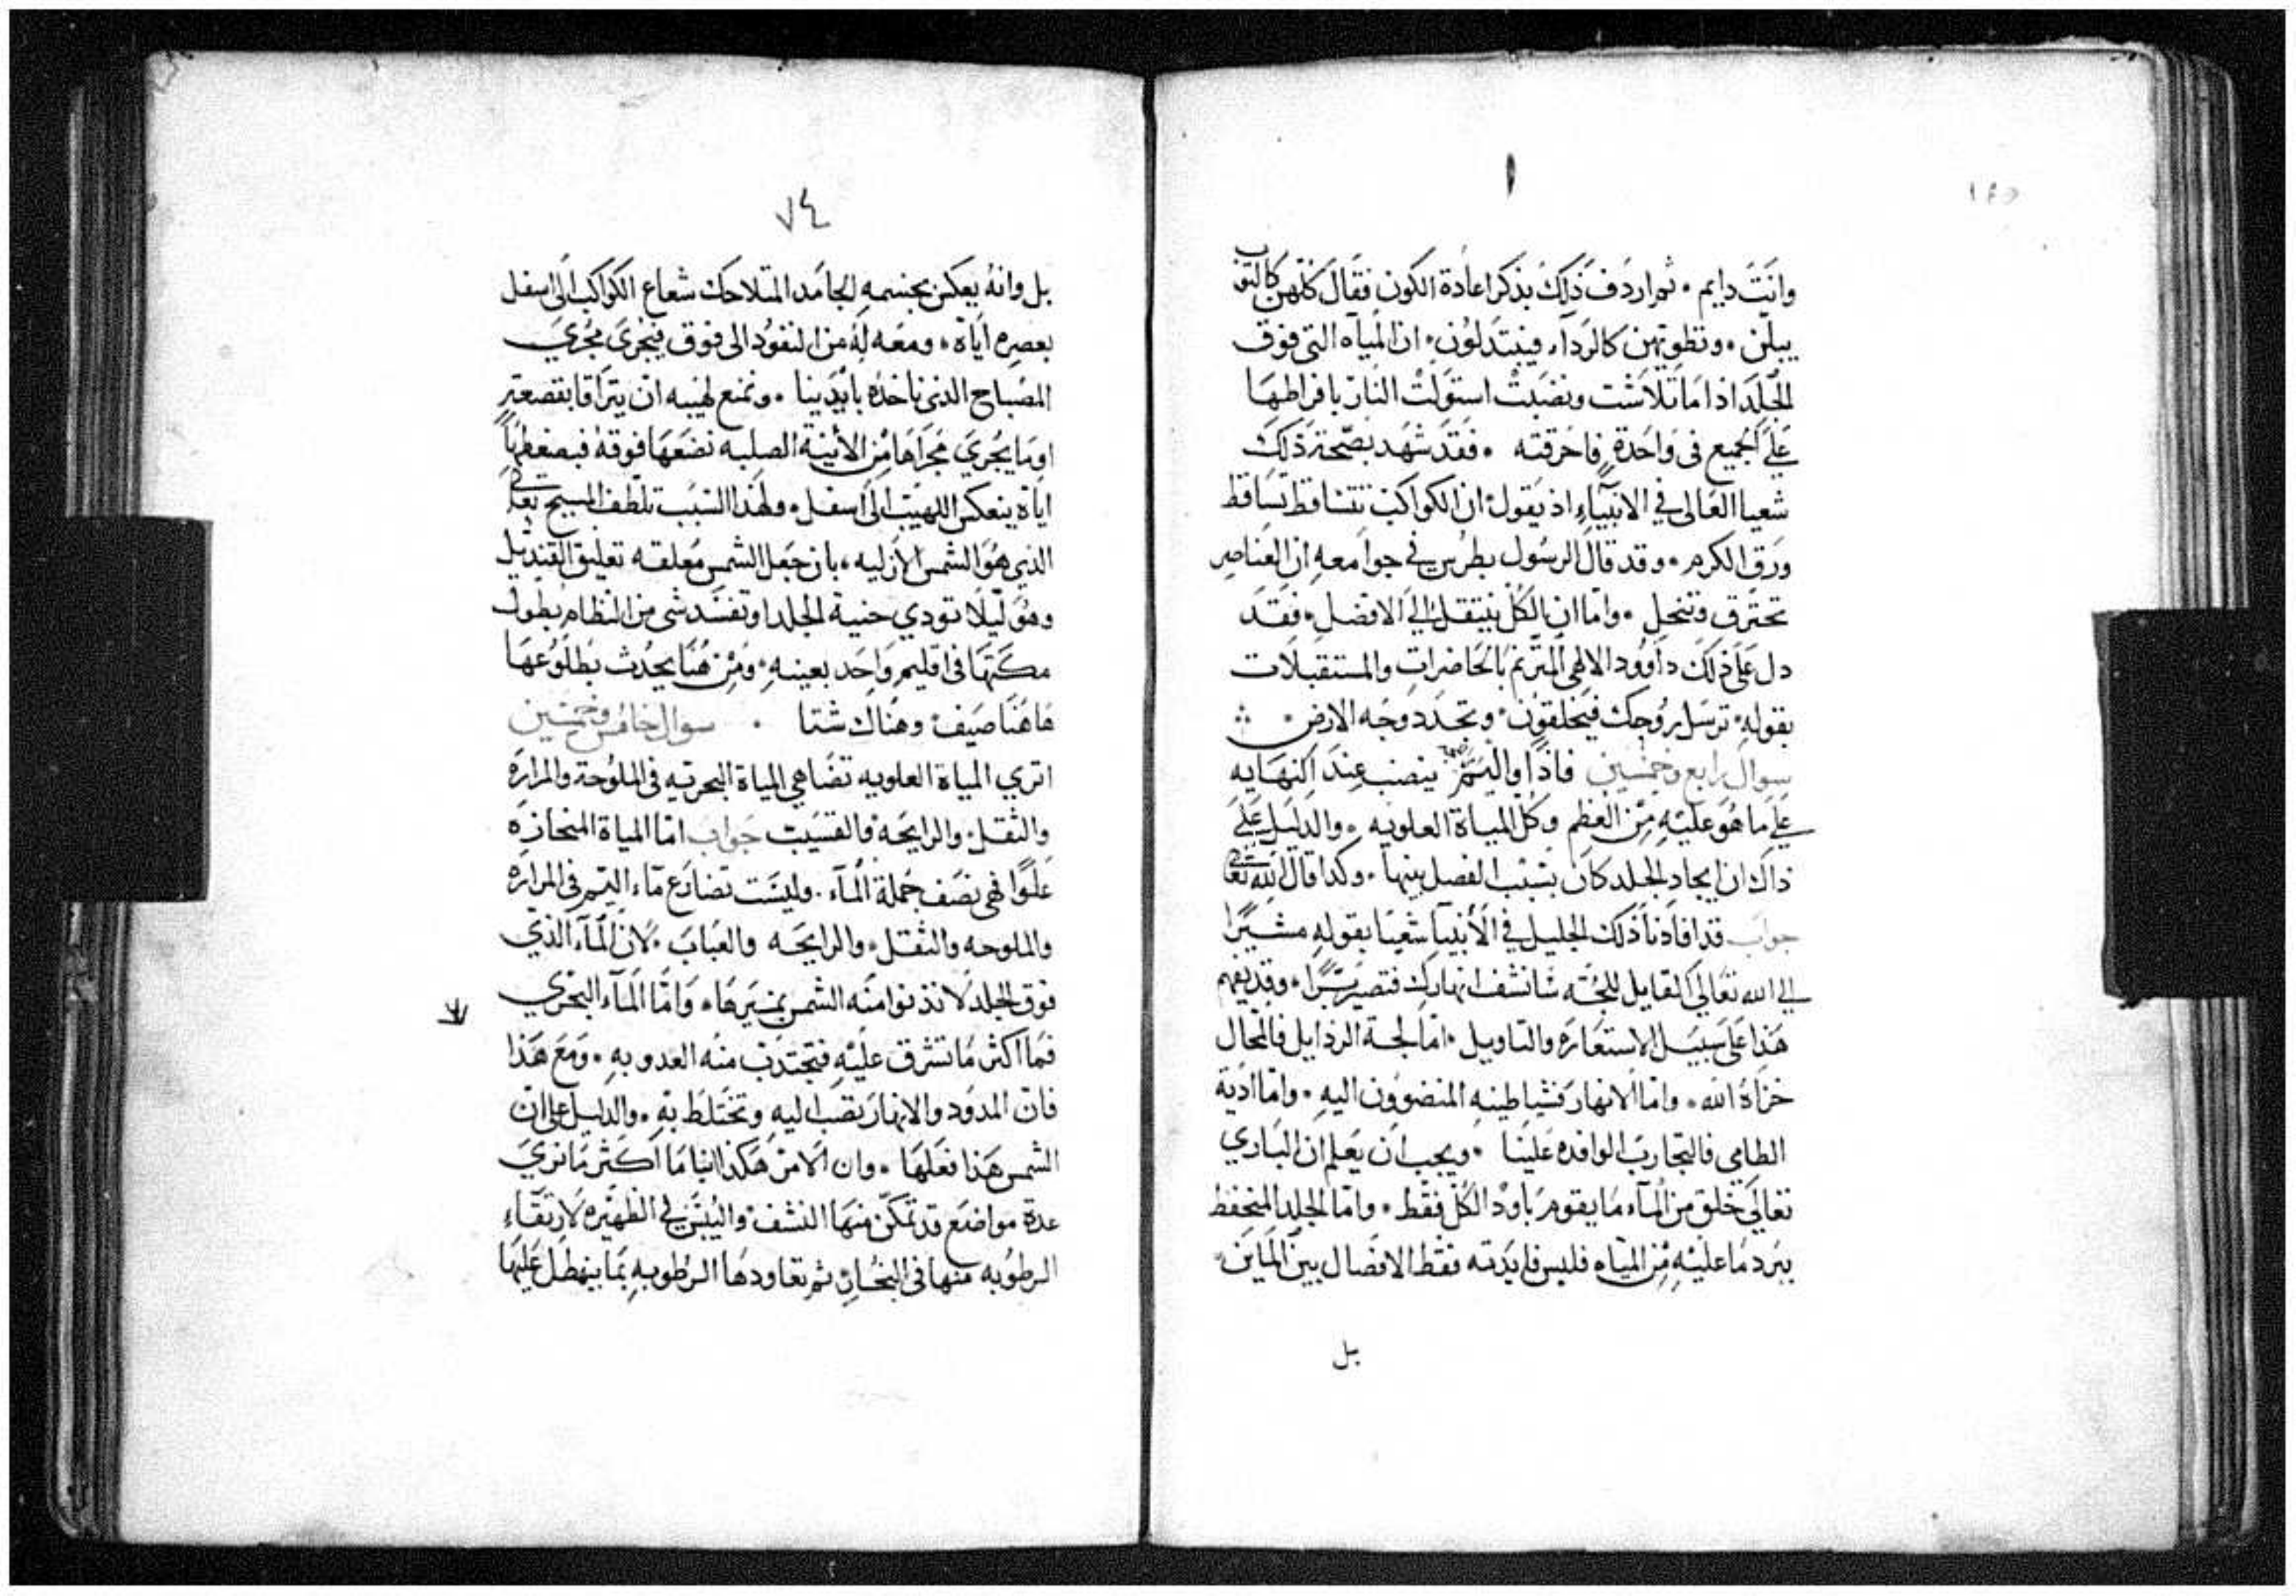 وانت دايم . ثم اردف ذلك بذكر اعادة الكون فقال كلهن كالثوب
يبلين . وتطويهن كالرداء فيتبدلون . ان المياه التي فوق
الجلد اذا ما تلاشت ونضبت استولت النار بافراطها
على الجميع في واحدة فاحرقته . فقد شهد بصحة ذلك
شعيا العالي في الانبياء اذ يقول ان الكواكب تتساقط تساقط
ورق الكرم . وقد قال الرسول بطرس في جوامعه ان العناصر
تحترق وتنحل . واما ان الكل ينتقل الى الافضل . فقد
دل على ذلك داوود الالهي المترنم بالحاضرات والمستقبلات
بقوله ترسل روحك فيخلقون . وتجدد وجه الارض .
سوال رابع وخمسين فاذًا واليم ينصب عند انهايه
على ما هو عليه من العظم وكل المياة العلويه . والدليل على
ذاك ان ايجاد الجلد كان بسبب الفصل بينها . وكذا قال الله تعالى
جواب قد افادنا ذلك الجليل في الانبيا شعيا بقوله مشيرًا
الى الله تعالى القايل للجّه سانشف انهارك فتصير يبسًا . وقد يفهم
هذا على سبيل الاستعارة والتاويل . اما لجة الرذايل فالمحال
خزاه الله . واما الانهار فشياطينه المنضوون اليه . واما اذية
الطامي فالتجارب الوافده علينا . ويجب ان يعلم ان الباري
تعالى خلق من الماء ما يقوم باود الكل فقط . واما الجلد المنحفظ
ببرد ما عليه من المياه فليس فايدته فقط الافصال بين الماين
بل
٧٤
بل وانه يعكس بجسمه الجامد المتلاحك شعاع الكواكب الى اسفل
بعصره اياه . ومعه له من النفود الى فوق فيجري مجري
المصباح الذي ناخذه بايدينا . ونمنع لهيبه ان يتراقا بقصعة
او بما يجري مجراها من الأنية الصلبه نضعها فوقه فبضغطها
اياه ينعكس اللهيب الى اسفل . ولهذا السبب تلطف المسيح تعالى
الذي هو الشمس الازليه ، بان جعل الشمس معلقه تعليق القنديل
وهو ليلا تودي حنية الجلد او تفسد شي من النظام بطول
مكثها في اقليم واحد بعينه . ومن هنا يحدث بطلوعها
هاهنا صيف وهناك شتا . سوال خامس وخمسين
اتري المياة العلويه تضاهي المياة البحريه في الملوحة والمرارة
والثقل والرايحة فالقسيب جواب اما المياة المنحازه
علوًا فهي نصف جملة الماء . وليست تضارع ماء اليم في المراره
والملوحه والثقل والرايحه والعباب . لان الماء الذي
فوق الجلد لا تدنوا منه الشمس بمسيرها . واما الماء البحري
فما اكثر ما تشرق عليه فتجتدب منه العدوبه . ومع هذا
فان المدود والانهار تصب اليه وتختلط به . والدليل على ان
الشمس هذا فعلها . وان الامر هكذا اننا ما اكثر ما نري
عدة مواضع قد تمكن منها النشف واليبس في الظهيره لارتقاء
الرطوبه منها في البخار ثم تعاودها الرطوبه بما ينهطل عليها